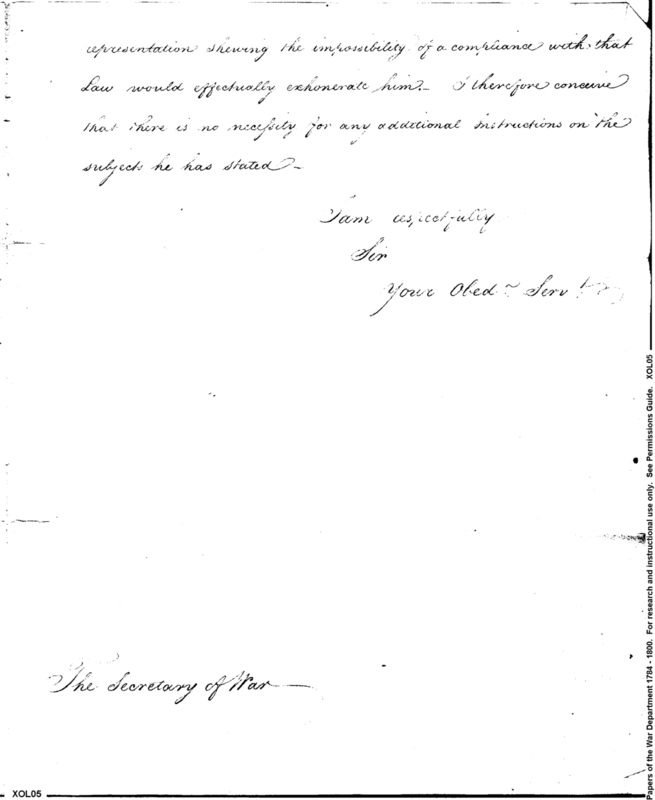 representation shewing the impossibility of a compliance with that
Law would effectually exhonerate him — I therefore conceive
that there is no necessity for any additional instructions on the
subjects he has stated —
I am respectfully
Sir
Your Obed.t Serv.t
The Secretary of War —
XOL05
Papers of the War Department 1784 - 1800. For research and instructional use only. See Permissions Guide. XOL05